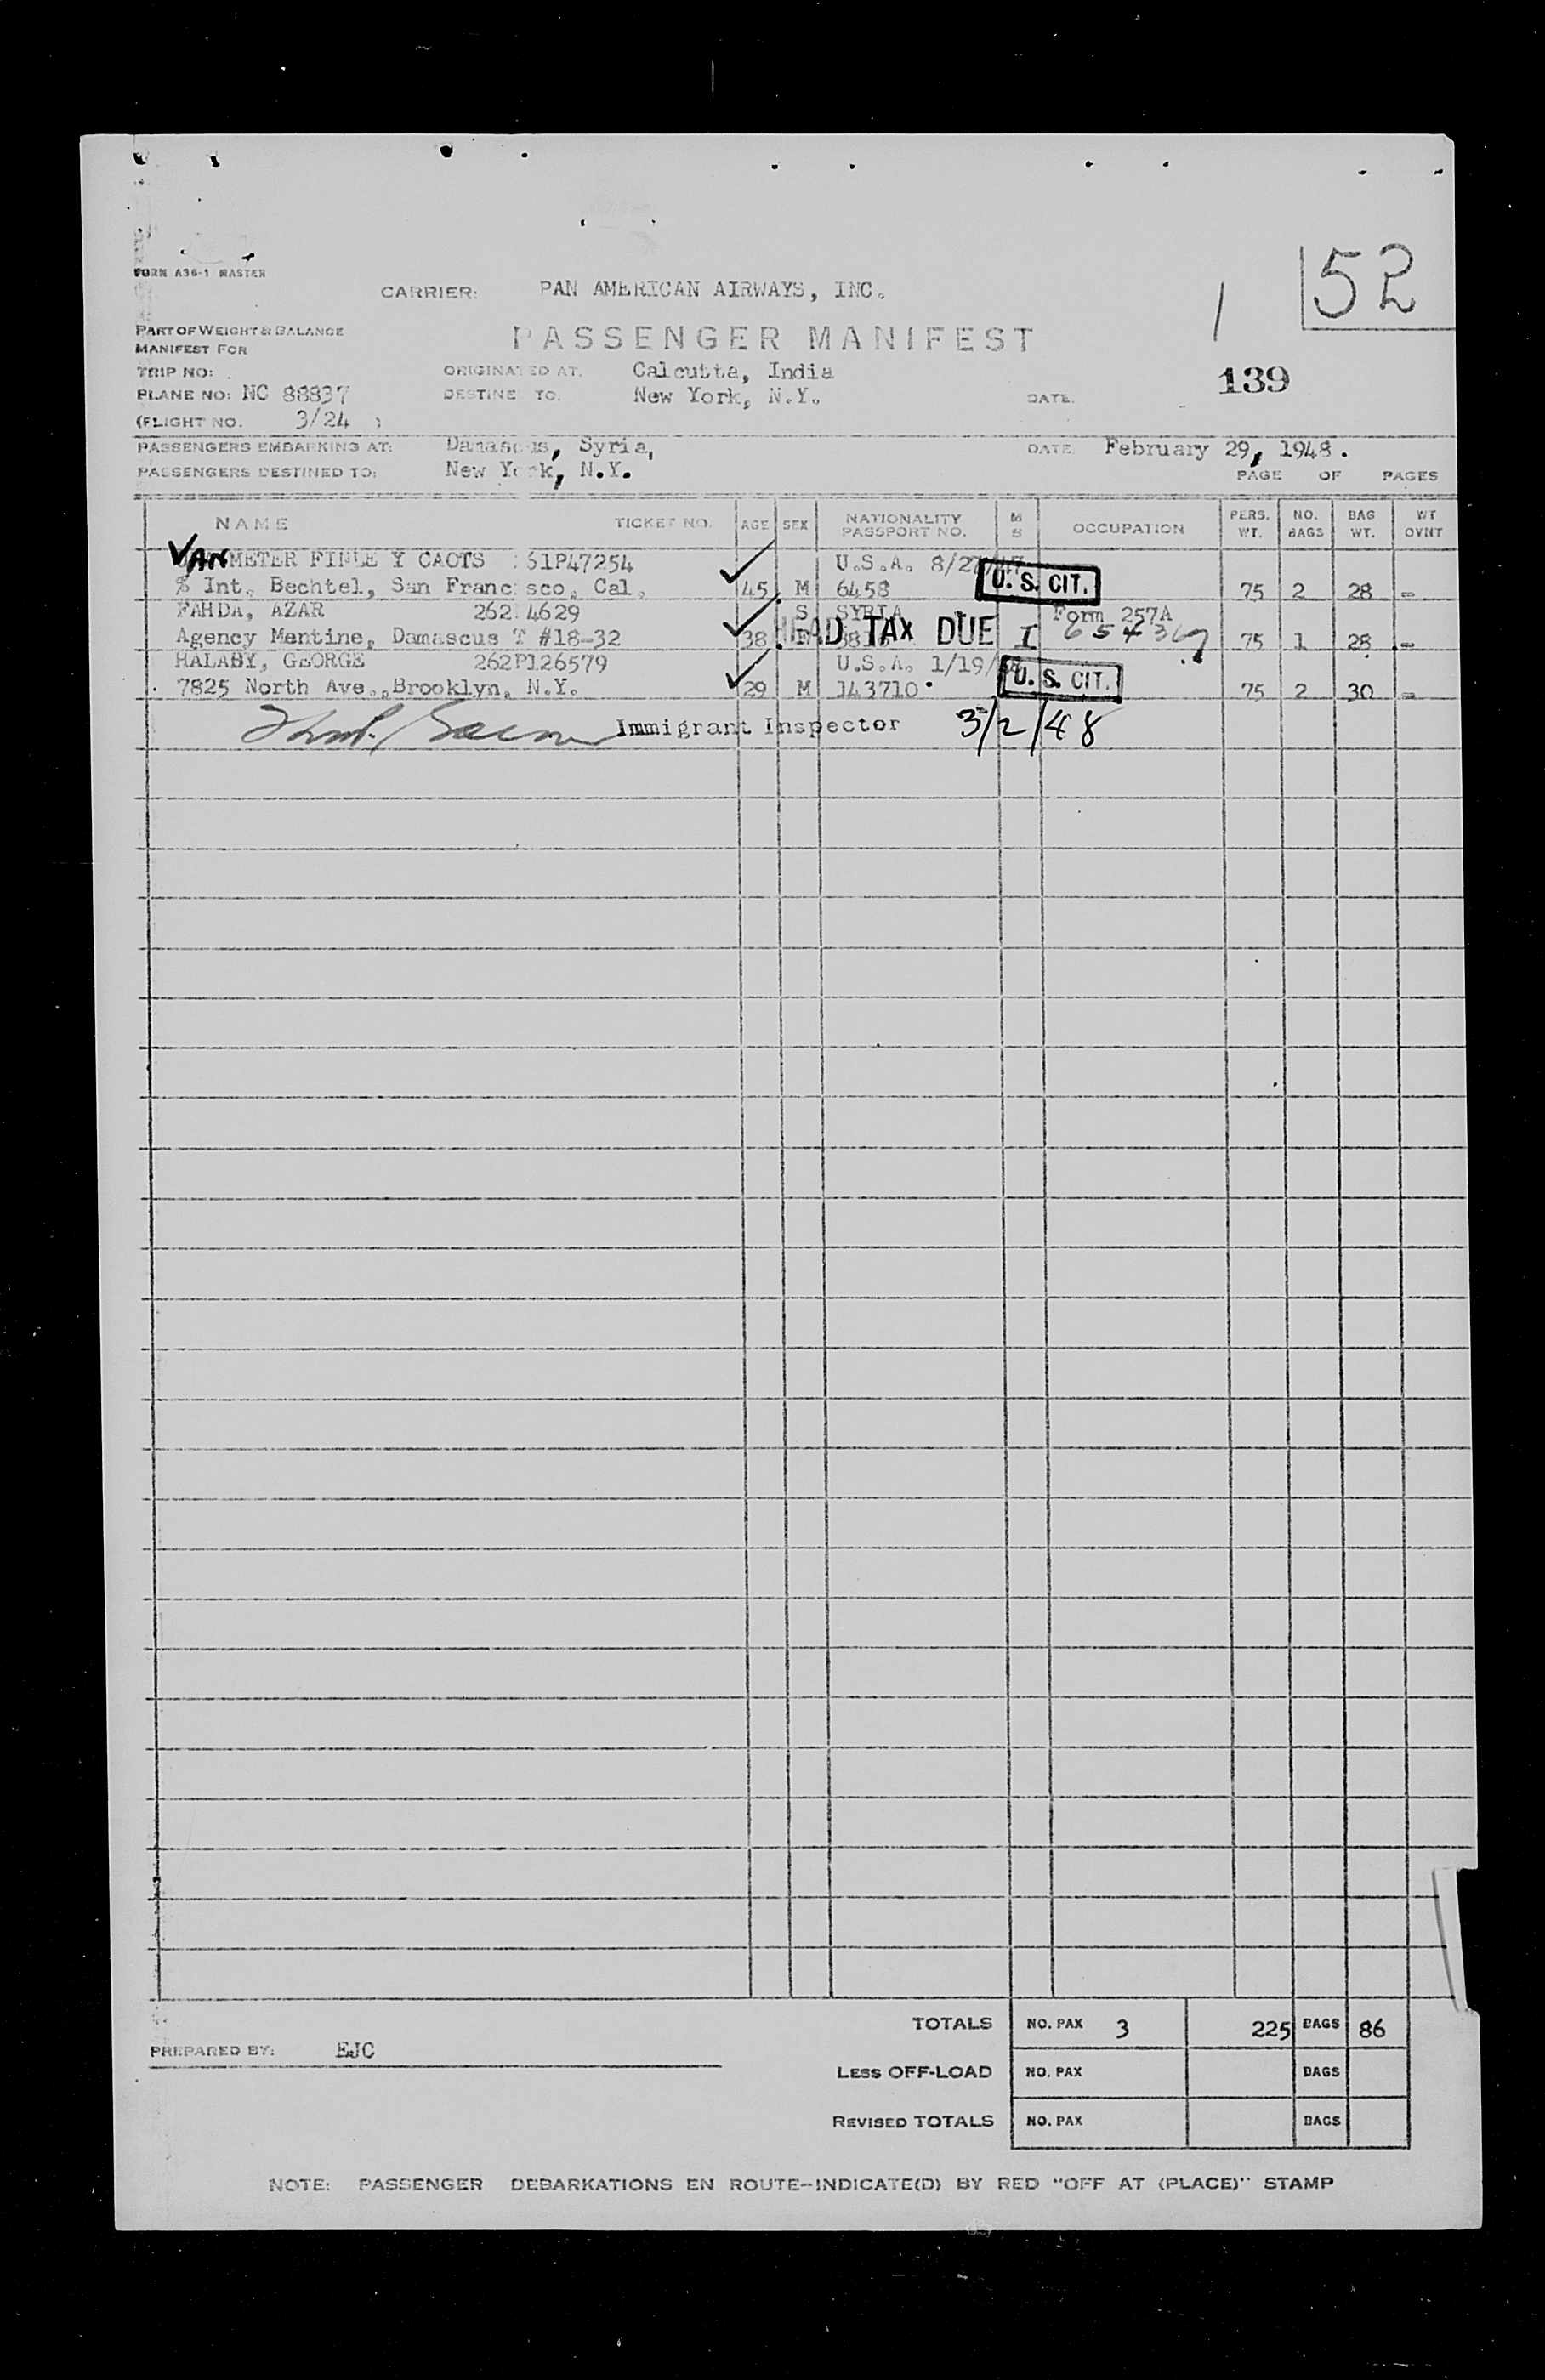 FORM A36-1 MASTER
52
CARRIER: PAN AMERICAN AIRWAYS, INC.
PART OF WEIGHT & BALANCE
MANIFEST FOR
PASSENGER MANIFEST
TRIP NO:
ORIGINATED AT. Calcutta, India
139
PLANE NO: NC 88837
DESTINED TO: New York, N.Y.
DATE:
(FLIGHT NO. 3/24 )
PASSENGERS EMBARKING AT: Damascus, Syria,
DATE: February 29, 1948.
PASSENGERS DESTINED TO: New York, N.Y.
PAGE OF PAGES
NAME TICKET NO. AGE SEX NATIONALITY PASSPORT NO. M S OCCUPATION PERS. WT. NO. BAGS BAG WT. WT OVNT
VAN METER FINLEY CAOTS 61P47254 U.S.A. 8/27/47
% Int. Bechtel, San Francisco, Cal. 45 M 6458 U. S. CIT. 75 2 28 -
FAHDA, AZAR 262 4629 S SYRIA Form 257A
Agency Mentine, Damascus T #18-32 38 HEAD TAX DUE I 75 1 28 -
HALABY, GEORGE 262P126579 U.S.A. 1/19/
7825 North Ave., Brooklyn, N.Y. 29 M 143710 U. S. CIT. 75 2 30 -
Immigrant Inspector 3/2/48
TOTALS NO. PAX 3 225 BAGS 86
PREPARED BY: EJC
LESS OFF-LOAD NO. PAX BAGS
REVISED TOTALS NO. PAX BAGS
NOTE: PASSENGER DEBARKATIONS EN ROUTE--INDICATE(D) BY RED "OFF AT (PLACE)" STAMP